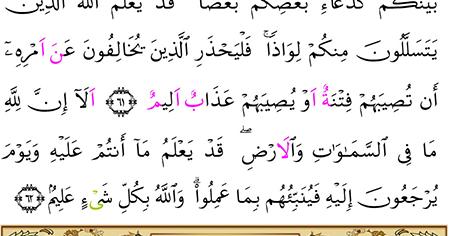 بَيْنَكُمْ كَدُعَآءِ بَعْضِكُم بَعْضًا ۚ قَدْ يَعْلَمُ اللَّهُ الَّذِينَ
يَتَسَلَّلُونَ مِنكُمْ لِوَاذًا ۚ فَلْيَحْذَرِ الَّذِينَ يُخَالِفُونَ عَنَ اَمْرِهِۦٓ
أَن تُصِيبَهُمْ فِتْنَةٌ اَوْ يُصِيبَهُمْ عَذَابٌ اَلِيمٌ ۝٦١ اَلَآ إِنَّ لِلَّهِ
مَا فِى السَّمَٰوَٰتِ وَالَارْضِ ۖ قَدْ يَعْلَمُ مَآ أَنتُمْ عَلَيْهِ وَيَوْمَ
يُرْجَعُونَ إِلَيْهِ فَيُنَبِّئُهُم بِمَا عَمِلُوا۟ ۗ وَاللَّهُ بِكُلِّ شَىْءٍ عَلِيمٌۢ ۝٦٢